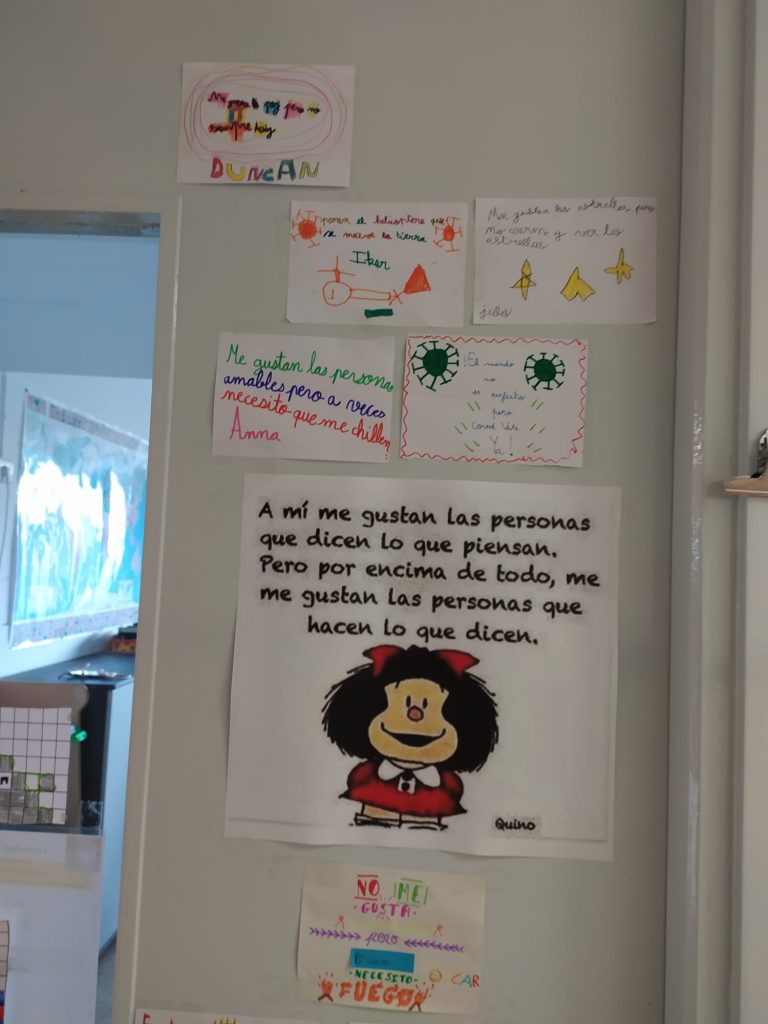 Me gusta la paz pero no
siempre hay
DUNCAN
¡paren el helicoptero que
se mueve la tierra
Iker
Me gustan las estrellas pero
no caerme y ver las
estrellas
jules
Me gustan las personas
amables pero a veces
necesito que me chillen
Anna
¡El mundo
no
es perfecto
pero
Covid Vete
Ya!
A mí me gustan las personas
que dicen lo que piensan.
Pero por encima de todo, me
me gustan las personas que
hacen lo que dicen.
Quino
NO ME
GUSTA
pero
NECESITO
FUEGO
CAR